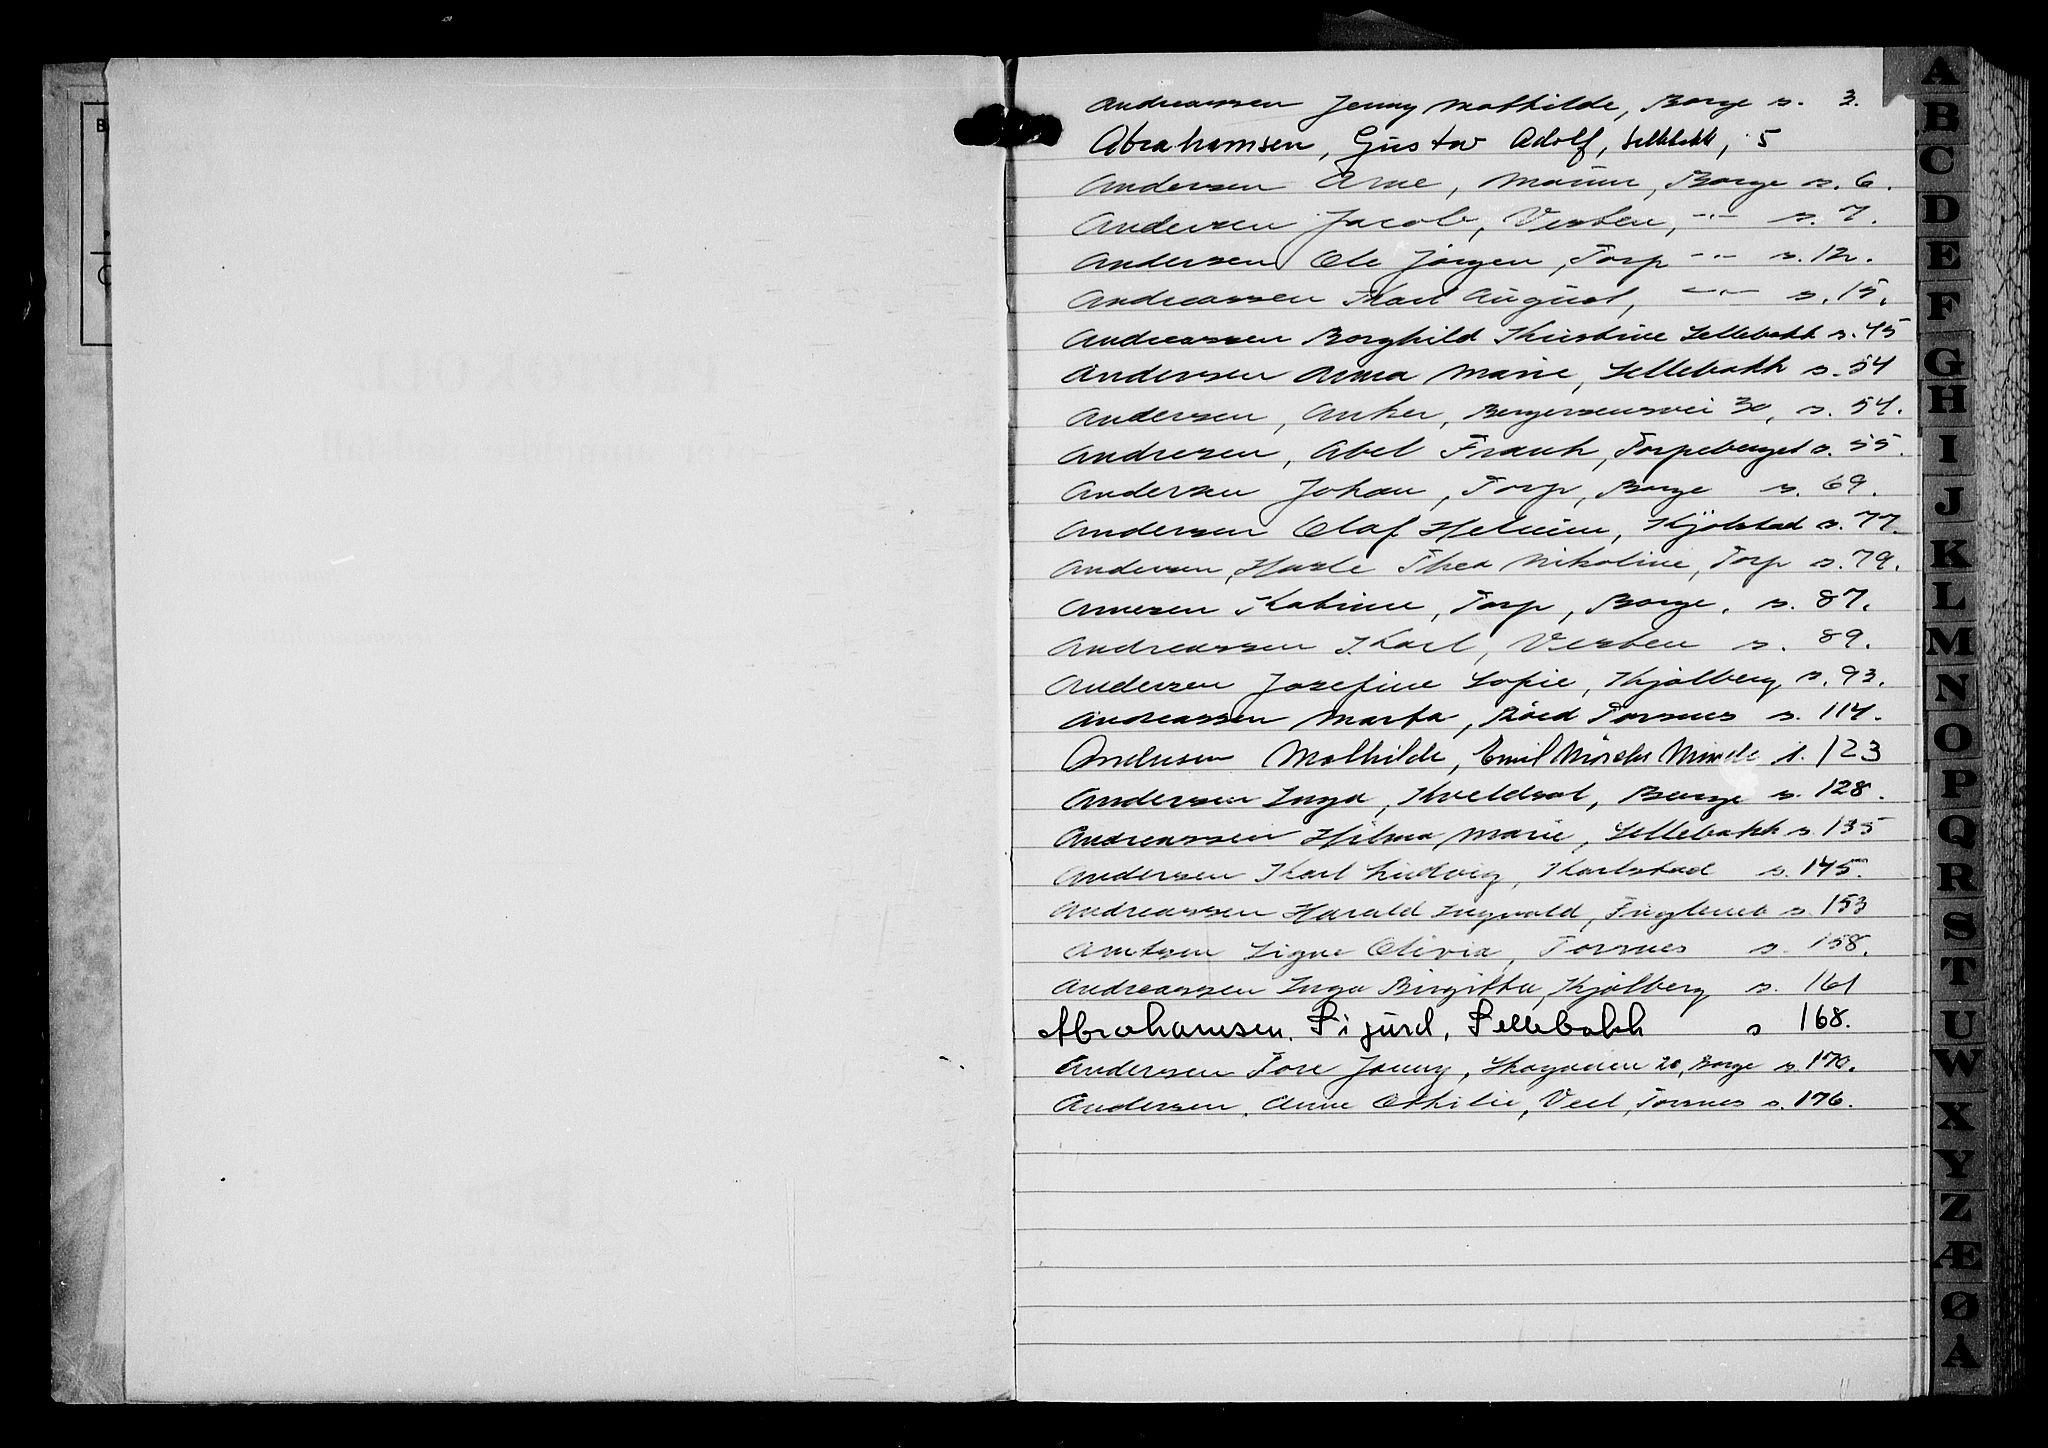 Andreassen Jenny Mathilde, Borge s. 3.
Abrahamsen, Gustav Adolf, Sellebakk, 5
Andersen Arne, Moum, Borge s. 6.
Andersen Jacob, Visten, -"- s. 7.
Andersen Ole Jørgen, Torp -"- s. 12.
Andreassen Karl August, -"- s. 15.
Andreassen Borghild Kristine Sellebakk s. 45
Andersen Anna Marie, Sellebakk s. 54
Andersen, Anker, Bergersensvei 30, s. 54.
Andresen, Abel Frank, Torpeberget s. 55.
Andersen Johan, Torp, Borge s. 69.
Andersen Olaf Helmin, Kjølstad s. 77.
Andersen, Hasle Thea Nikoline, Torp s. 79.
Arnesen Kabine, Torp, Borge. s. 87.
Andreassen Karl, Visten s. 89.
Andersen Josefine Sofie, Kjølberg s. 93.
Andreassen Marta, Røed Torsnes s. 114.
Andresen Mathilde, Emil Mørchs Minde s. 123
Andersen Inga, Kveldsol, Borge s. 128.
Andreassen Hilma Marie, Sellebakk s. 135
Andersen Karl Ludvig, Karlstad s. 145.
Andreassen Harald Ingvald, s. 153
Arntsen Signe Olivia, Torsnes s. 158.
Andreassen Inga Birgitta, Kjølberg s. 161
Abrahamsen. Sigurd, Sellebakk s 168.
Andersen Tore Jonny, Skogveien 20, Borge s. 170.
Andersen, Anne Othilie, Veel, Torsnes s. 176.
A
B
C
D
E
F
G
H
I
J
K
L
M
N
O
P
Q
R
S
T
U
W
X
Y
Z
Æ
Ø
A